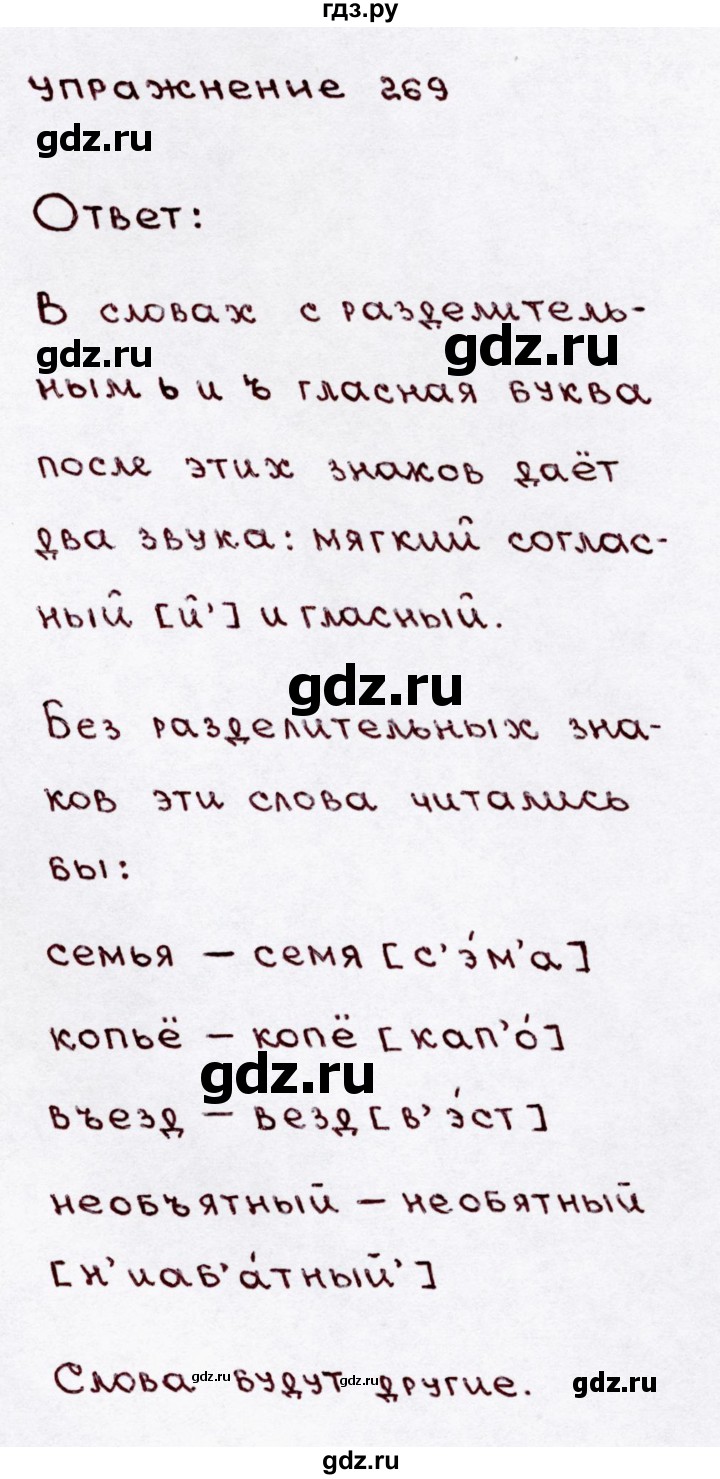 гдз.ру
упражнение 269
gdz.ru
Ответ:
В словах с разделитель-
gdz.ru
gdz.ru
ным ь и ъ гласная буква
после этих знаков даёт
два звука: мягкий соглас-
ный [й'] и гласный.
gdz.ru
Без разделительных зна-
ков эти слова читались
бы:
семья – семя [с'э́м'а]
копьё – копё [кап'о́]
gdz.ru
въезд – везд [в'э́ст]
необъятный – необятный
[н'иаб'а́тный']
Слова будут другие.
gdz.ru
gdz.ru
gdz.ru
gdz.ru